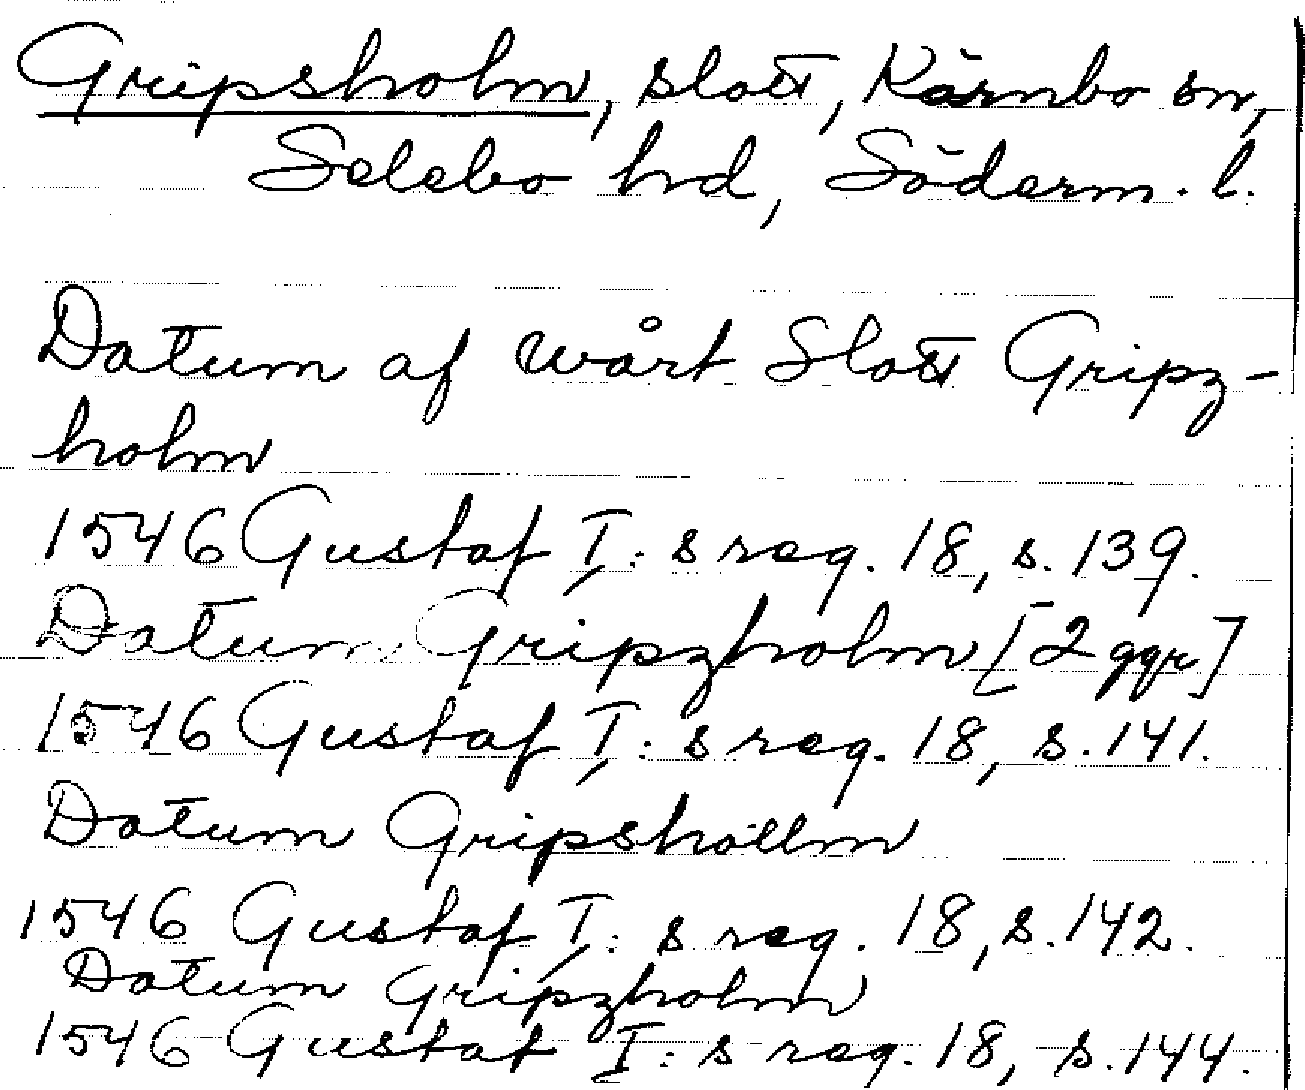 Gripsholm, slott, Kärnbo sn,
Selebo hd, Söderm. l.
Datum af wårt Slott Gripz-
holm
1546 Gustaf I: s reg. 18, s. 139.
Datum Gripzholm [2 ggr]
1546 Gustaf I: s reg. 18, s. 141.
Datum Gripshollm
1546 Gustaf I: s reg. 18, s. 142.
Datum Gripzholm
1546 Gustaf I: s reg. 18, s. 144.